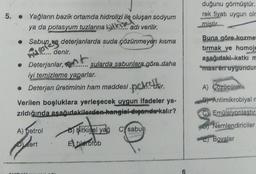 5. • Yağların bazik ortamda hidrolizi ile oluşan sodyum
ya da potasyum tuzlarına adı verilir.
• Sabun ve deterjanlarda suda çözünmeyen kısma
denir.
• Deterjanlar, sularda sabunlara göre daha
iyi temizleme yaparlar.
• Deterjan üretiminin ham maddesi petrol dir.
Verilen boşluklara yerleşecek uygun ifadeler ya-
zıldığında aşağıdakilerden hangisi dışarıda kalır?
A) petrol B) bitkisel yağ C) sabun
D) sert E) hidrofob
düğunu görmüştür.
rek fiyatı uygun olm
miştir.
Buna göre kozmet
tırmak ve homoje
aşağıdaki katkı m
ması en uygundur
A) Çözücüler
B) Antimikrobiyal m
C) Emülsiyonlaştır
D) Nemlendiriciler
E) Boyalar